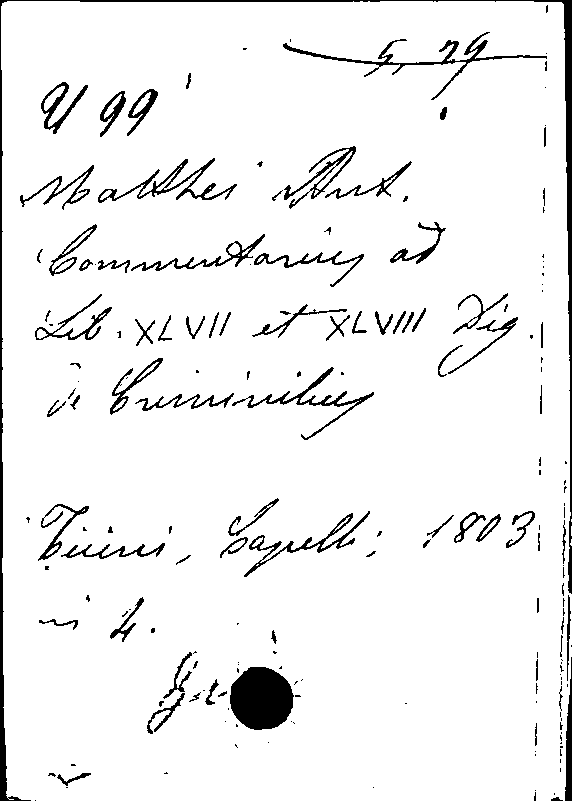 5, 29
U 99
Matthei Ant.
Commentarius ad
Lib. XLVII et XLVIII Dig.
de Criminibus
Ticini, Capelli; 1803
in 4.